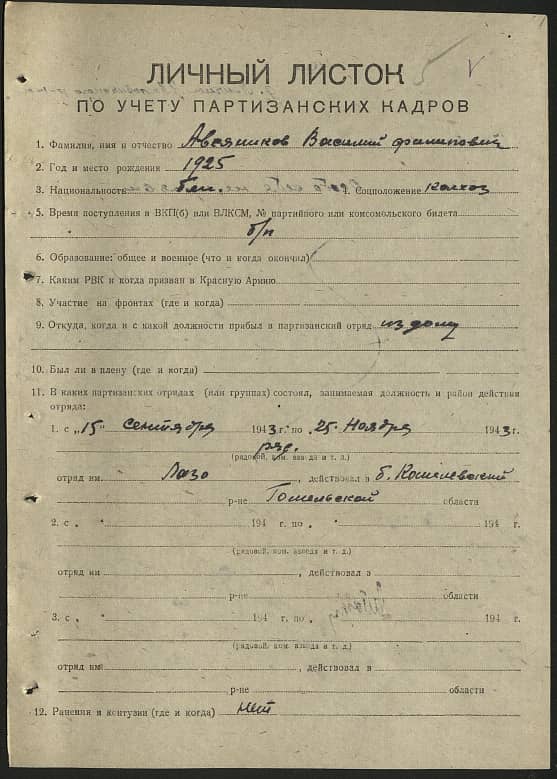 ЛИЧНЫЙ ЛИСТОК
ПО УЧЕТУ ПАРТИЗАНСКИХ КАДРОВ
1. Фамилия, имя и отчество Авсяников Василий Филипович
2. Год и место рождения 1925
3. Национальность бел. 4. Соцположение колхоз
5. Время поступления в ВКП(б) или ВЛКСМ, № партийного или комсомольского билета
б/п
6. Образование: общее и военное (что и когда окончил)
7. Каким РВК и когда призван в Красную Армию
8. Участие на фронтах (где и когда)
9. Откуда, когда и с какой должности прибыл в партизанский отряд из дому
10. Был ли в плену (где и когда)
11. В каких партизанских отрядах (или группах) состоял, занимаемая должность и район действия
отряда:
1. с „15" сентября 1943 г. по „25" Ноября 1943 г.
ряд.
(рядовой, ком. взвода и т. д.)
отряд им. Лазо, действовал в б. Кошелевский
р-не Гомельской области
2. с „ " 194 г. по „ " 194 г.
(рядовой, ком. взвода и т. д.)
отряд им, действовал в
р-не области
3. с „ " 194 г. по „ " 194 г.
(рядовой, ком. взвода и т. д.)
отряд им., действовал в
р-не области
12. Ранения и контузии (где и когда) нет